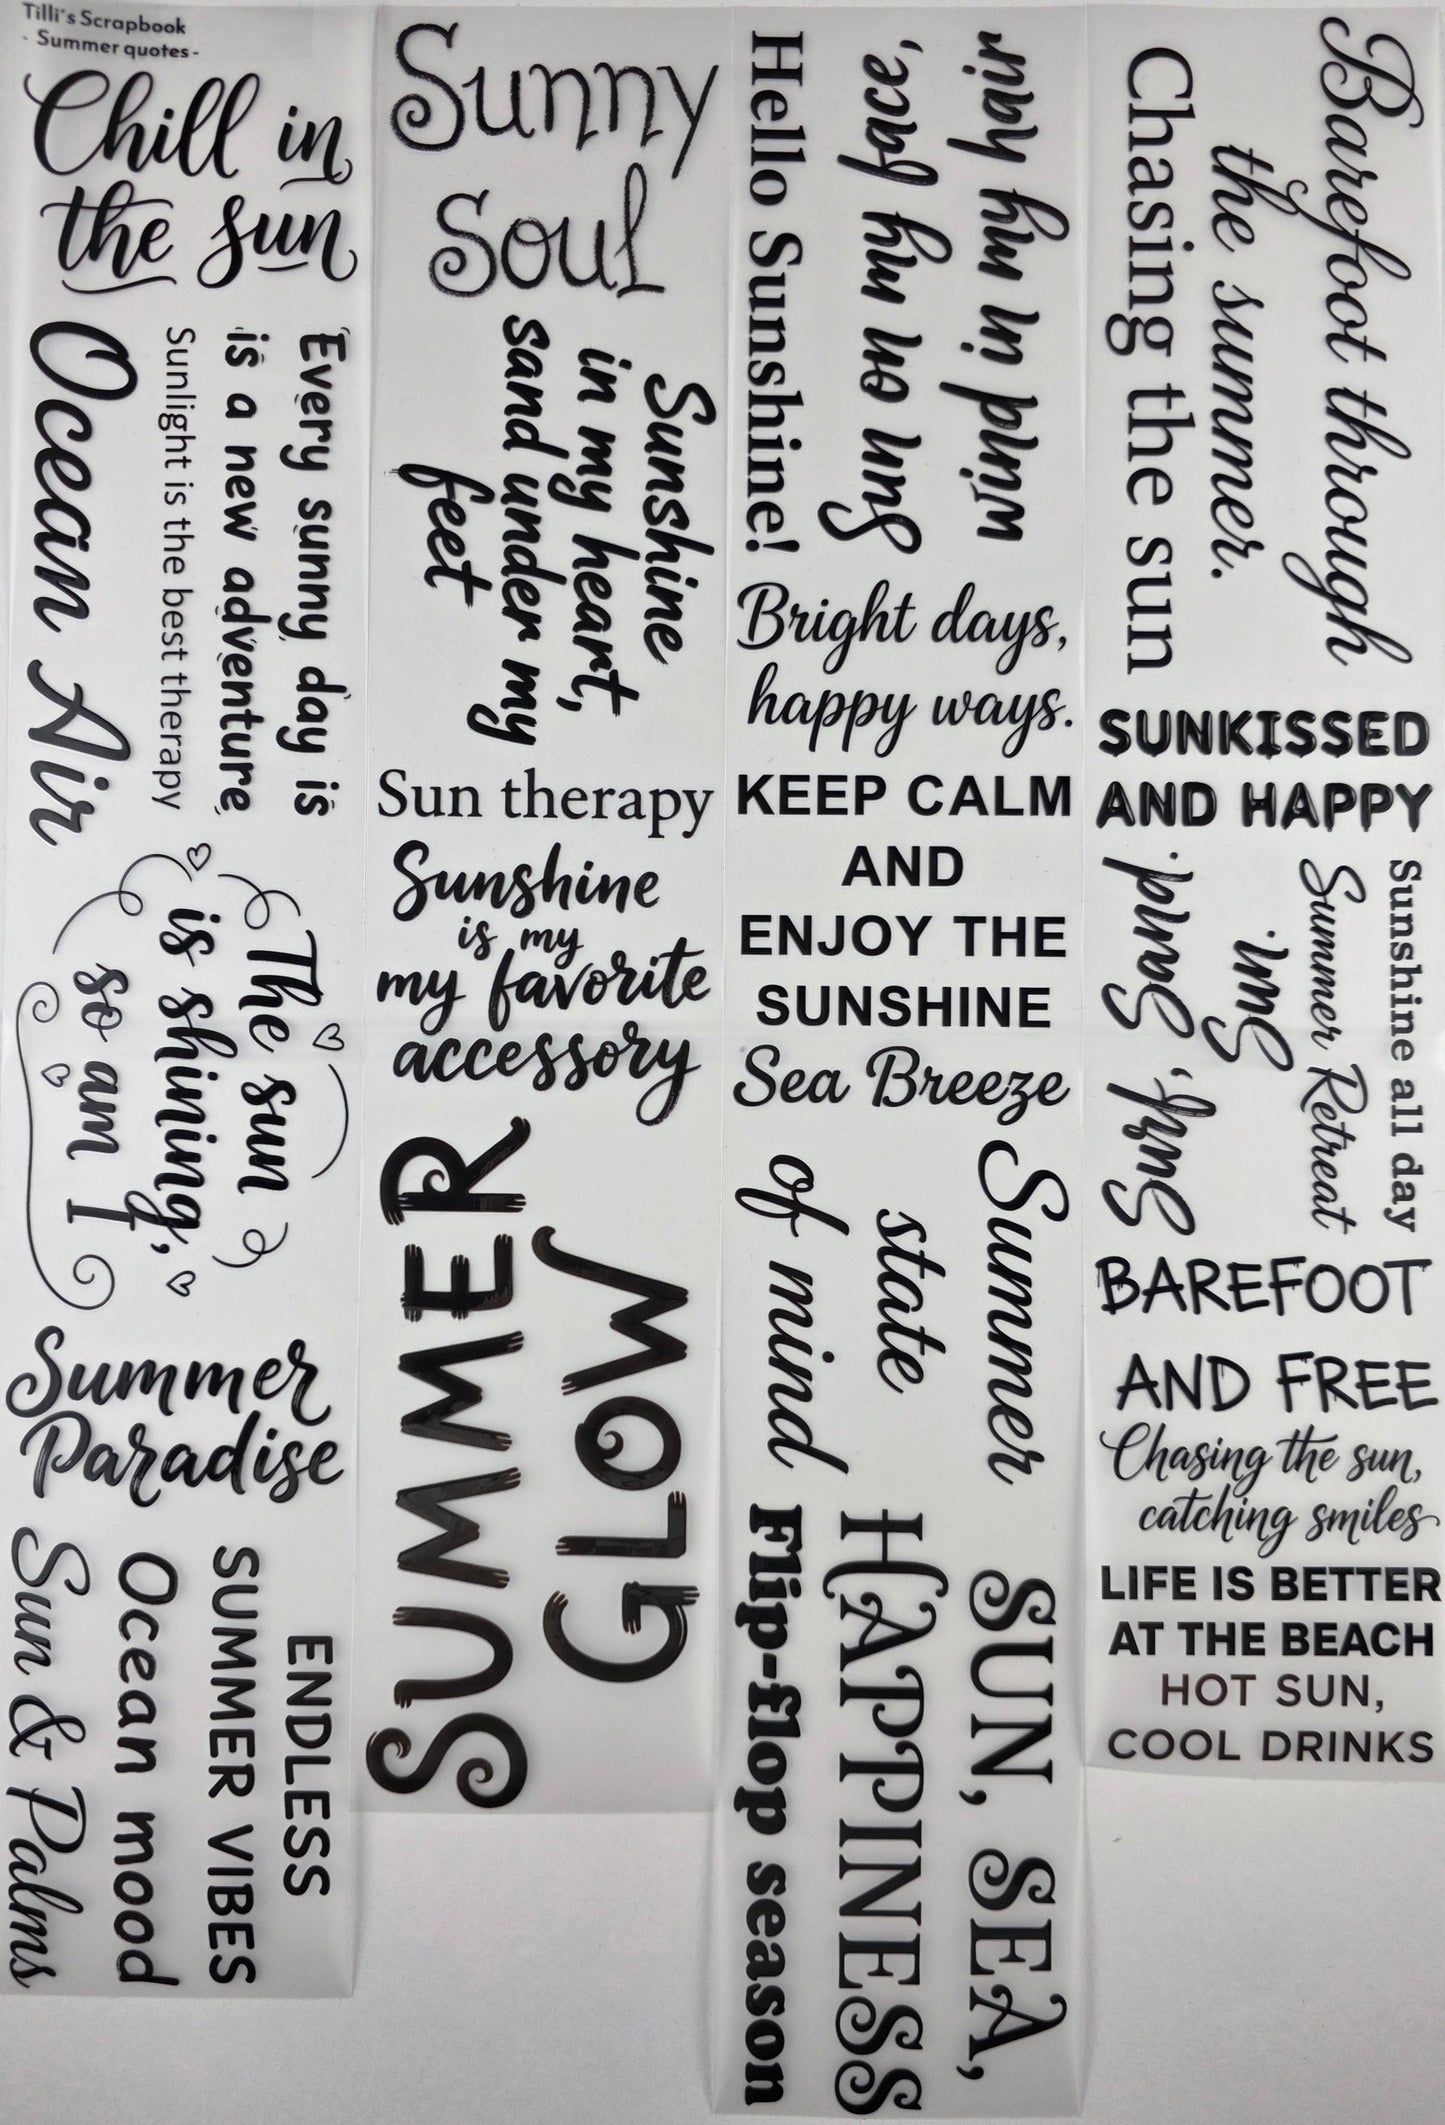 Tilli's Scrapbook
- Summer quotes -
Chill in
the sun
Every sunny day is
is a new adventure
Sunlight is the best therapy
Ocean Air
The sun
is shining,
so am I
Summer
Paradise
ENDLESS
SUMMER VIBES
Ocean mood
Sun & Palms
Sunny
Soul
Sunshine
in my heart,
sand under my
feet
Sun therapy
Sunshine
is my
my favorite
accessory
SUMMER
GLOW
Hello Sunshine!
Sun on my face,
wind in my hair
Bright days,
happy ways.
KEEP CALM
AND
ENJOY THE
SUNSHINE
Sea Breeze
Summer
state
of mind
SUN, SEA,
HAPPINESS
Flip-flop season
Barefoot through
the summer.
Chasing the sun
SUNKISSED
AND HAPPY
Sunshine all day
Summer Retreat
Surf, Sand,
Swim.
BAREFOOT
AND FREE
Chasing the sun,
catching smiles
LIFE IS BETTER
AT THE BEACH
HOT SUN,
COOL DRINKS